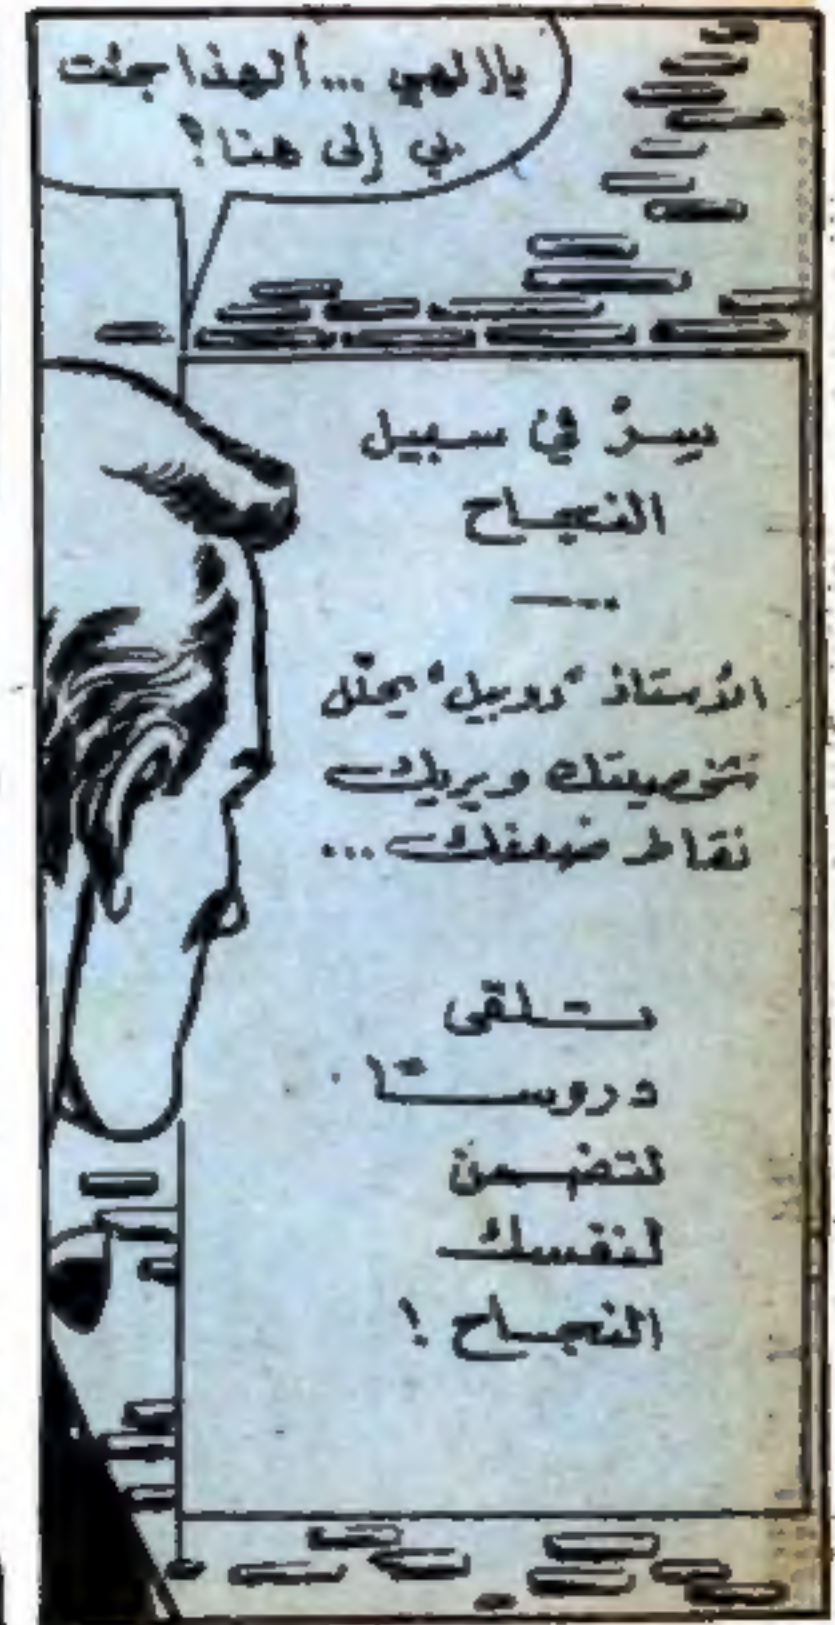 ياإلهي ...ألهذا جئت
بي إلى هنا؟
سِرْ في سبيل
النجاح
الأستاذ "روبيل" يحلّل
شخصيتك ويريك
نقاط ضعفك ...
تلقى
دروسًا
لتضمن
لنفسك
النجاح !